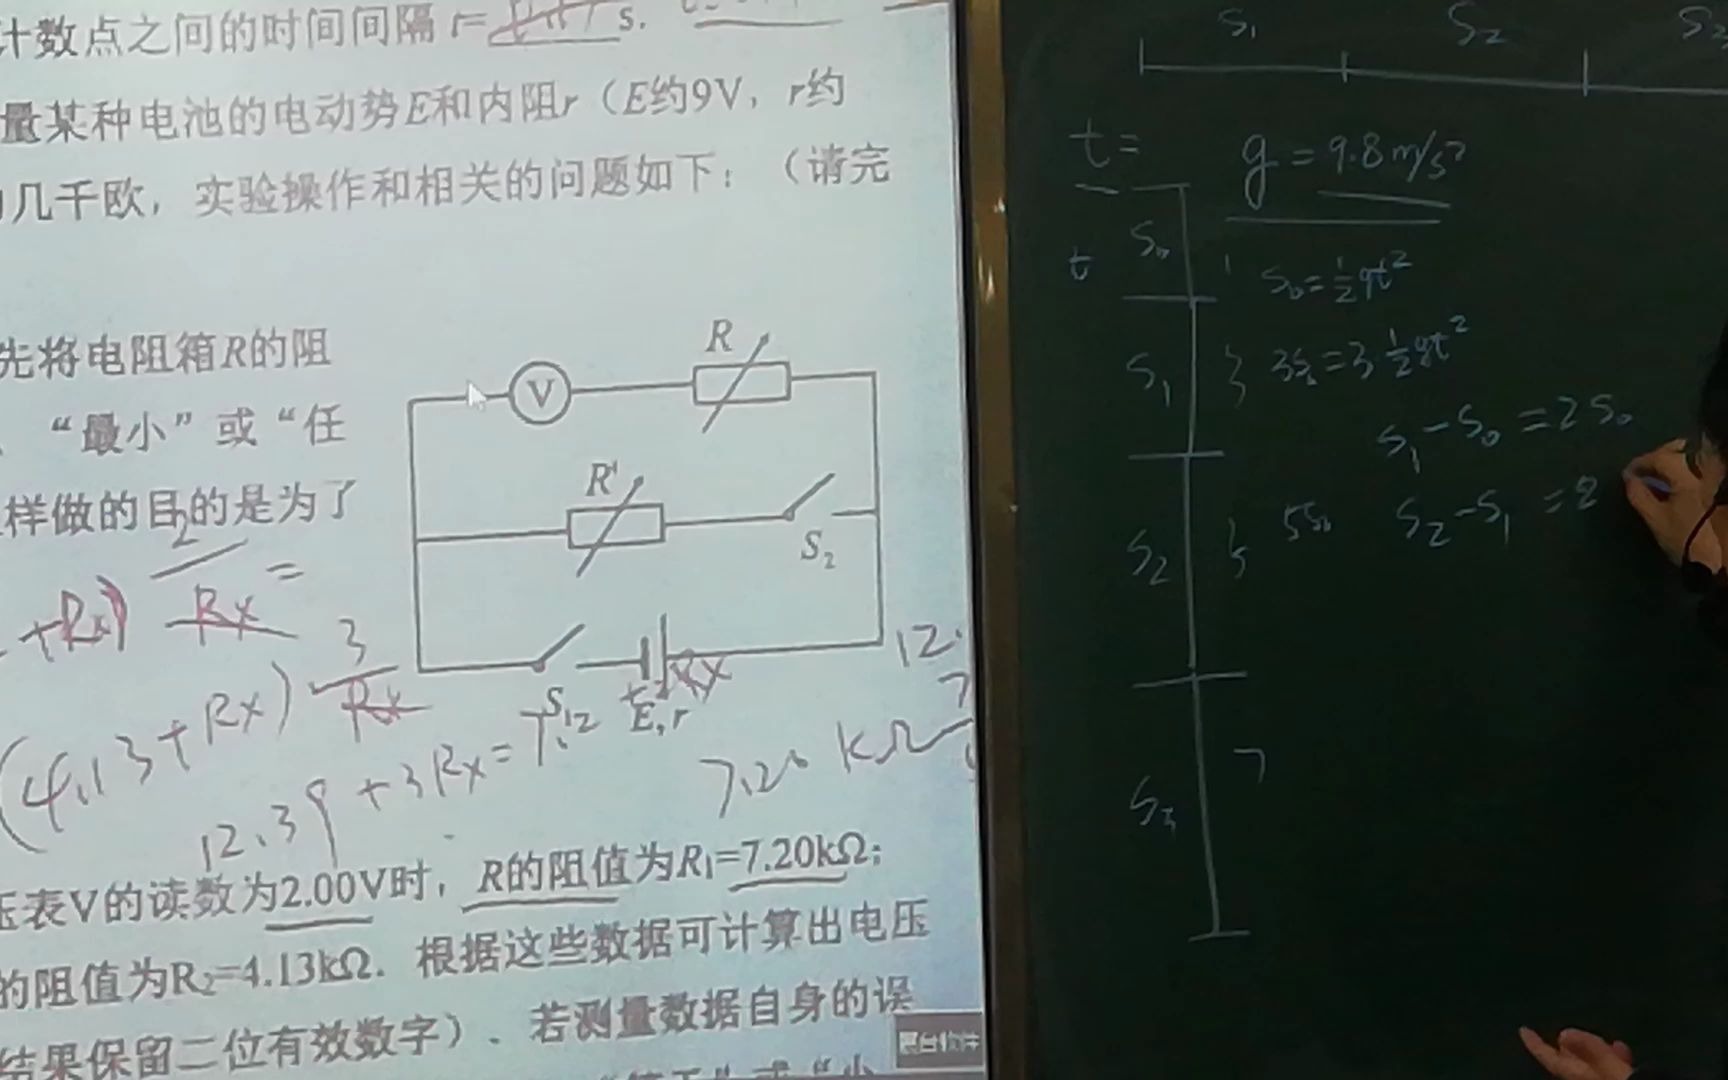 计数点之间的时间间隔 t= s.
量某种电池的电动势E和内阻r（E约9V，r约
几千欧，实验操作和相关的问题如下：（请完
先将电阻箱R的阻
、“最小”或“任
样做的目的是为了
V
R
R'
S₂
S
E,r
2
+Rx) Rx =
3
(4.13+Rx) Rx
12.39+3Rx=7.12
Rx
12.
7.20 kΩ
压表V的读数为2.00V时，R的阻值为R₁=7.20kΩ；
的阻值为R₂=4.13kΩ．根据这些数据可计算出电压
结果保留二位有效数字）．若测量数据自身的误
展台软件
S₁ S₂
t= g=9.8m/s²
t S₀ 1 S₀=½gt²
S₁ 3 3S₀=3·½gt²
S₁-S₀=2S₀
S₂ 5 5S₀ S₂-S₁=2
S₃ 7